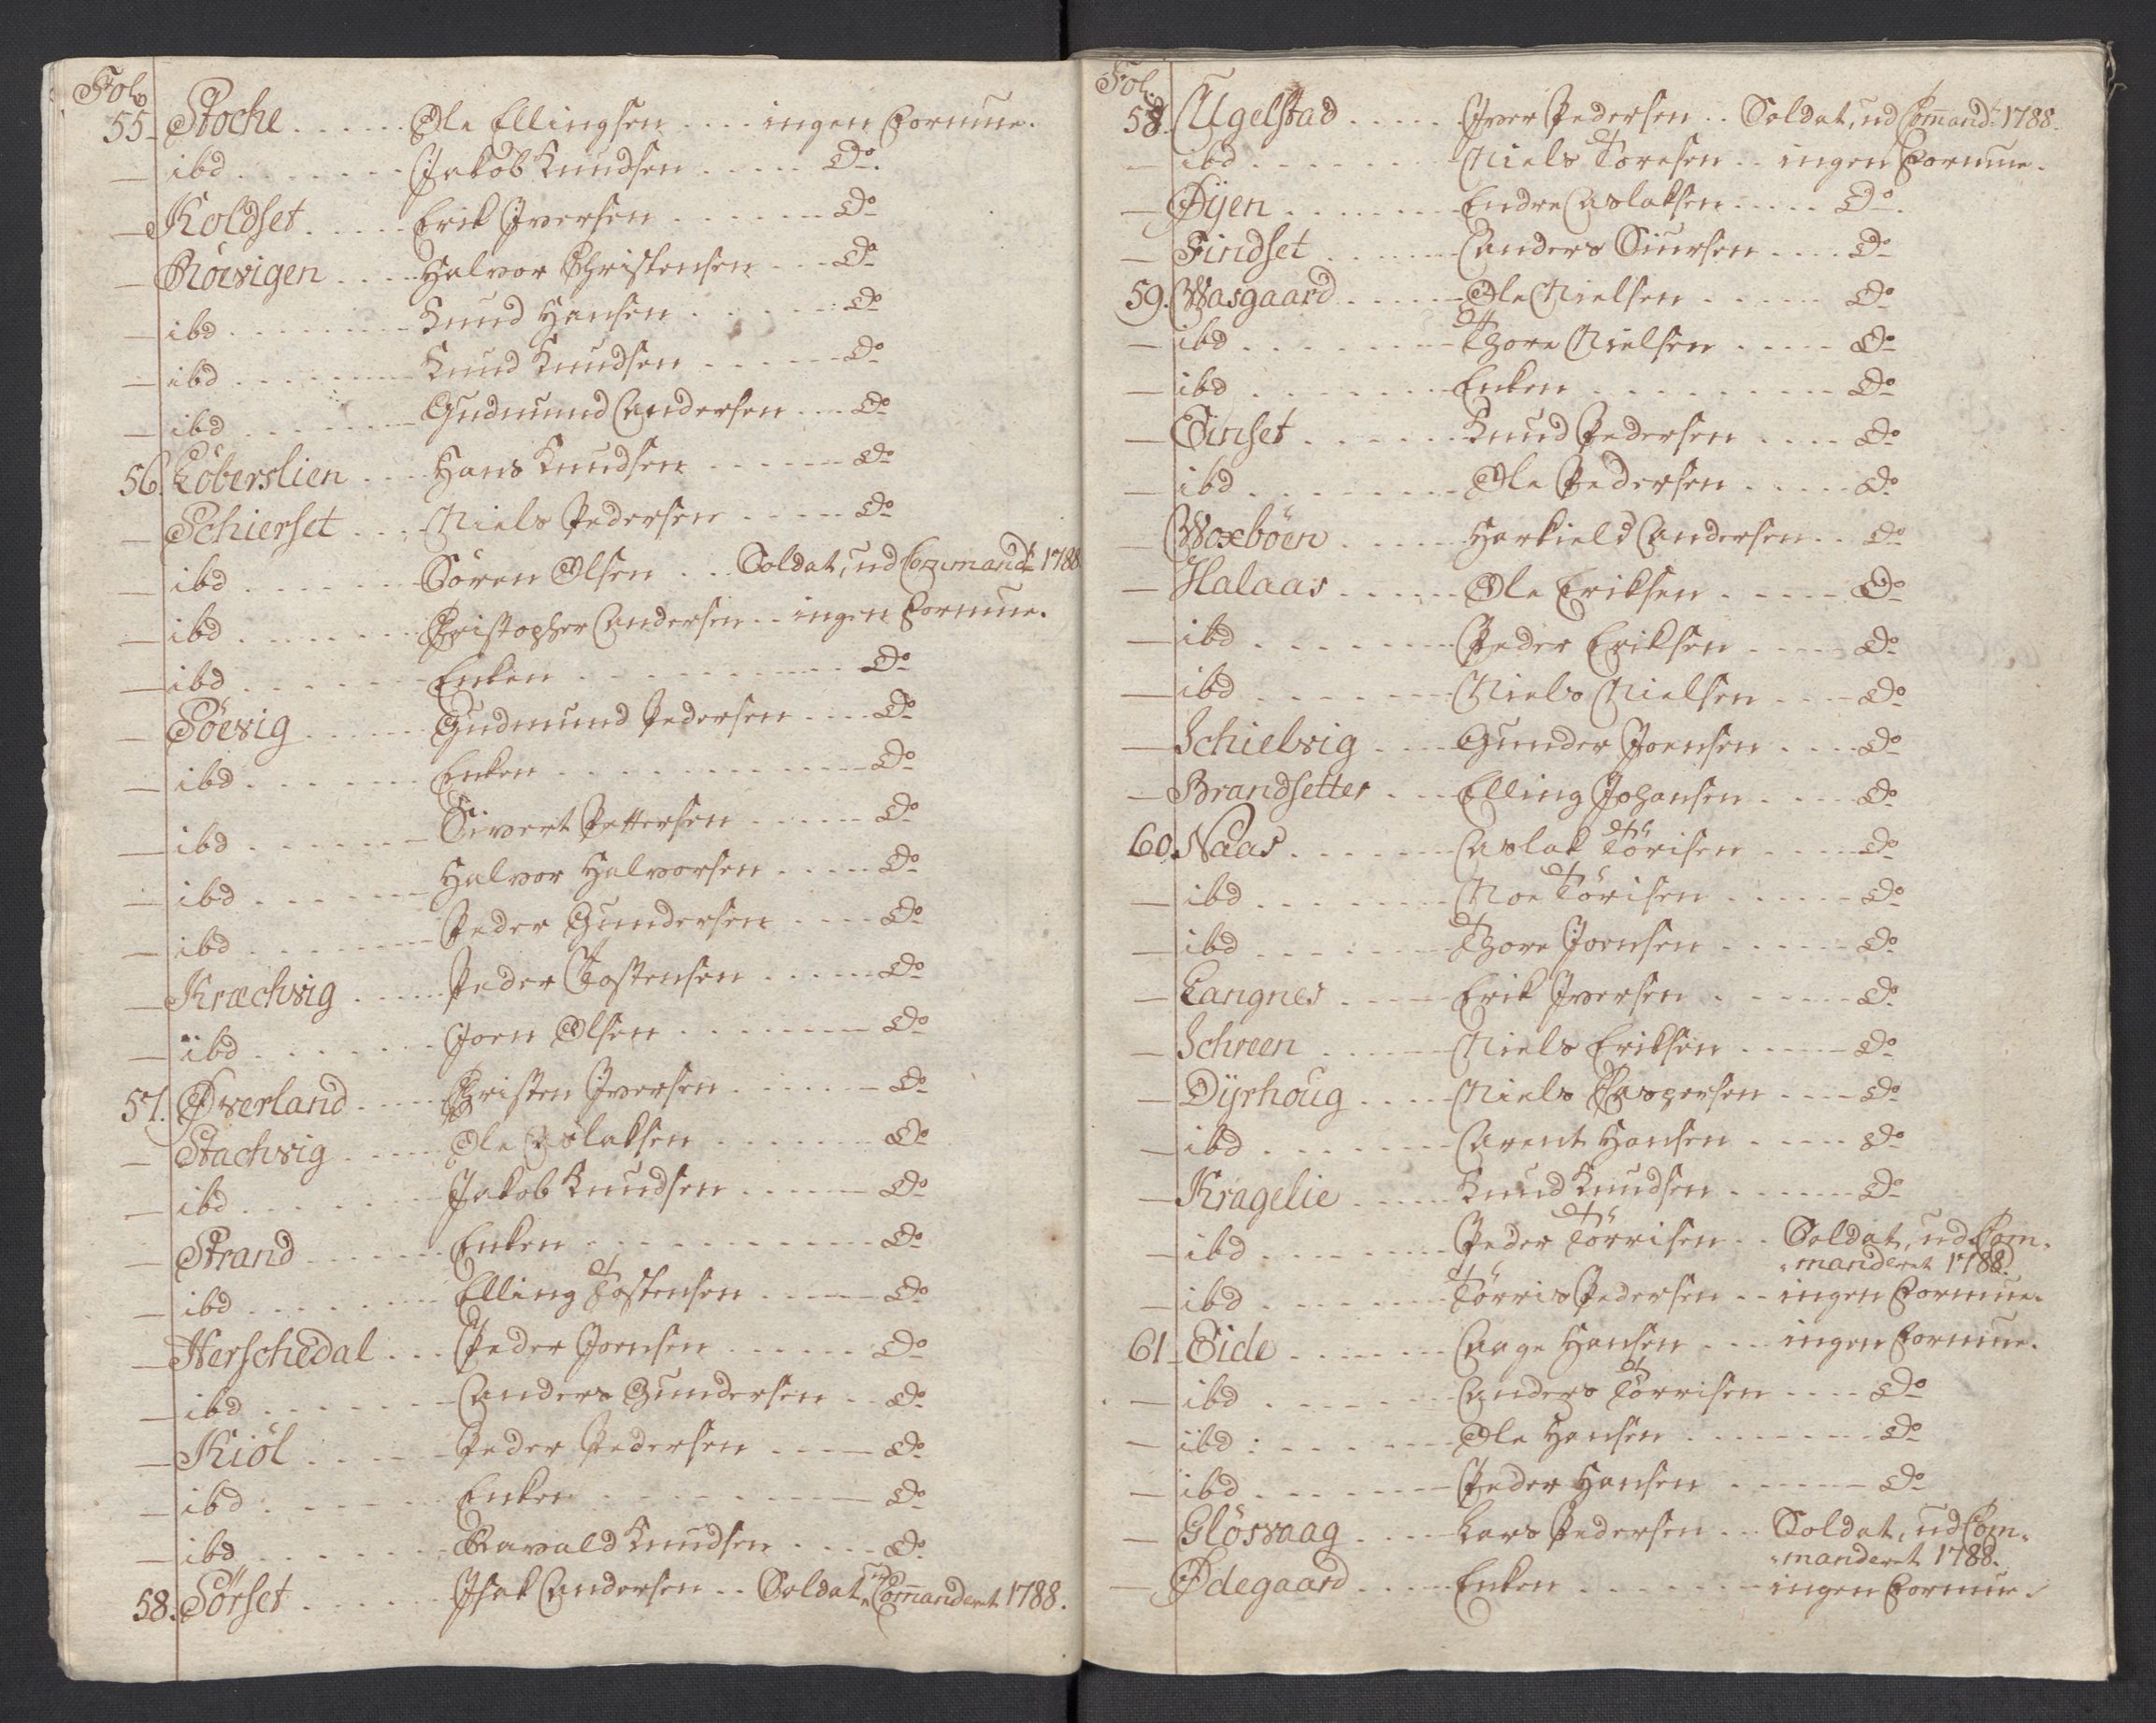 Fol.
55. Stoche . . . . . Ole Ellingsen . . . . ingen Formue.
— ibd . . . . . . . Jakob Knudsen . . . . . Do.
— Koldset . . . . . Erik Iversen . . . . . . Do
— Röevigen . . . . Halvor Christensen . . . Do
— ibd . . . . . . . Knud Hansen . . . . . . Do
— ibd . . . . . . . Knud Knudsen . . . . . . Do
— ibd . . . . . . . Gudmund Andersen . . . Do
56. Löberslien . . . Hans Knudsen . . . . . . Do
— Schierset . . . Niels Pedersen . . . . . Do
— ibd . . . . . . Sören Olsen . . . Soldat, ud Commandt 1788
— ibd . . . . . . . Christopher Andersen . . ingen Formue.
— ibd . . . . . . . Enken . . . . . . . . . . Do
— Söevig . . . . . Gudmund Pedersen . . . . Do
— ibd . . . . . . . Enken . . . . . . . . . . Do
— ibd . . . . . . . Sivert Pettersen . . . . . Do
— ibd . . . . . . . Halvor Halvorsen . . . . . Do
— ibd . . . . . . . Peder Gundersen . . . . Do
— Kræchvig . . . . . Peder Tostensen . . . . . Do
— ibd . . . . . . . Joen Olsen . . . . . . . . Do
57. Øverland . . . . Christen Iversen . . . . . . Do
— Stachvig . . . . . Ole Aslaksen . . . . . . . Do
— ibd . . . . . . . Jakob Knudsen . . . . . . Do
— Strand . . . . . . Enken . . . . . . . . . . Do
— ibd . . . . . . . Elling Tostensen . . . . . Do
— Herschedal . . . Peder Joensen . . . . . . Do
— ibd . . . . . . . Anders Gundersen . . Do
— Kiöl . . . . . . Peder Pedersen . . . . . Do
— ibd . . . . . . . Enken . . . . . . . . . . Do
— ibd . . . . . . . Ravald Knudsen . . . . . Do
58. Sörset . . . . . . Isak Andersen . . Soldat, ud Commanderet 1788.
Fol.
58. Ugelstad . . . . . Iver Pedersen . . Soldat, ud Commandt 1788.
— ibd . . . . . . . . Niels Toresen . . ingen Formue.
— Øijen . . . . . . . Endre Aslaksen . . . . . Do.
— Findset . . . . . . Anders Siursen . . . . Do
59. Wasgaard . . . . . Ole Nielsen . . . . . . Do
— ibd . . . . . . . . Thore Nielsen . . . . . Do
— ibd . . . . . . . . Enken . . . . . . . . . Do
— Einset . . . . . . Knud Pedersen . . . . Do
— ibd . . . . . . . . Ole Pedersen . . . . . Do
— Woxböen . . . . . Harkield Andersen . . Do
— Halaas . . . . . . Ole Eriksen . . . . . Do
— ibd . . . . . . . . Peder Eriksen . . . . Do
— ibd . . . . . . . . Niels Nielsen . . . . Do
— Schielvig . . . . Gunder Joensen . . . . Do
— Brandsetter . . . Elling Johansen . . . . Do
60. Naas . . . . . . . Aslak Törisen . . . . Do
— ibd . . . . . . . . Noe Törisen . . . . . . Do
— ibd . . . . . . . . Thore Joensen . . . . . . Do
— Langnes . . . . . Erik Iversen . . . . . . Do
— Schreen . . . . . Niels Eriksen . . . . . Do
— Dÿrhoug . . . . . Niels Caspersen . . . . Do
— ibd . . . . . . . . Arent Hansen . . . . . Do
— Kragelie . . . . . Knud Knudsen . . . . . . Do
— ibd . . . . . . . . Peder Törrisen . . Soldat, ud Com-
manderet 1788.
— ibd . . . . . . . . Törris Pedersen . . ingen Formue.
61. Eide . . . . . . . Aage Hansen . . . ingen Formue.
— ibd . . . . . . . . Anders Törrisen . . . . Do
— ibd . . . . . . . . Ole Hansen . . . . . . . Do
— ibd . . . . . . . . Peder Hansen . . . . . . Do
— Glösvaag . . . . Lars Pedersen . . . Soldat, ud Com-
manderet 1788.
— Ødegaard . . . . . Enken . . . . . . . ingen Formue.